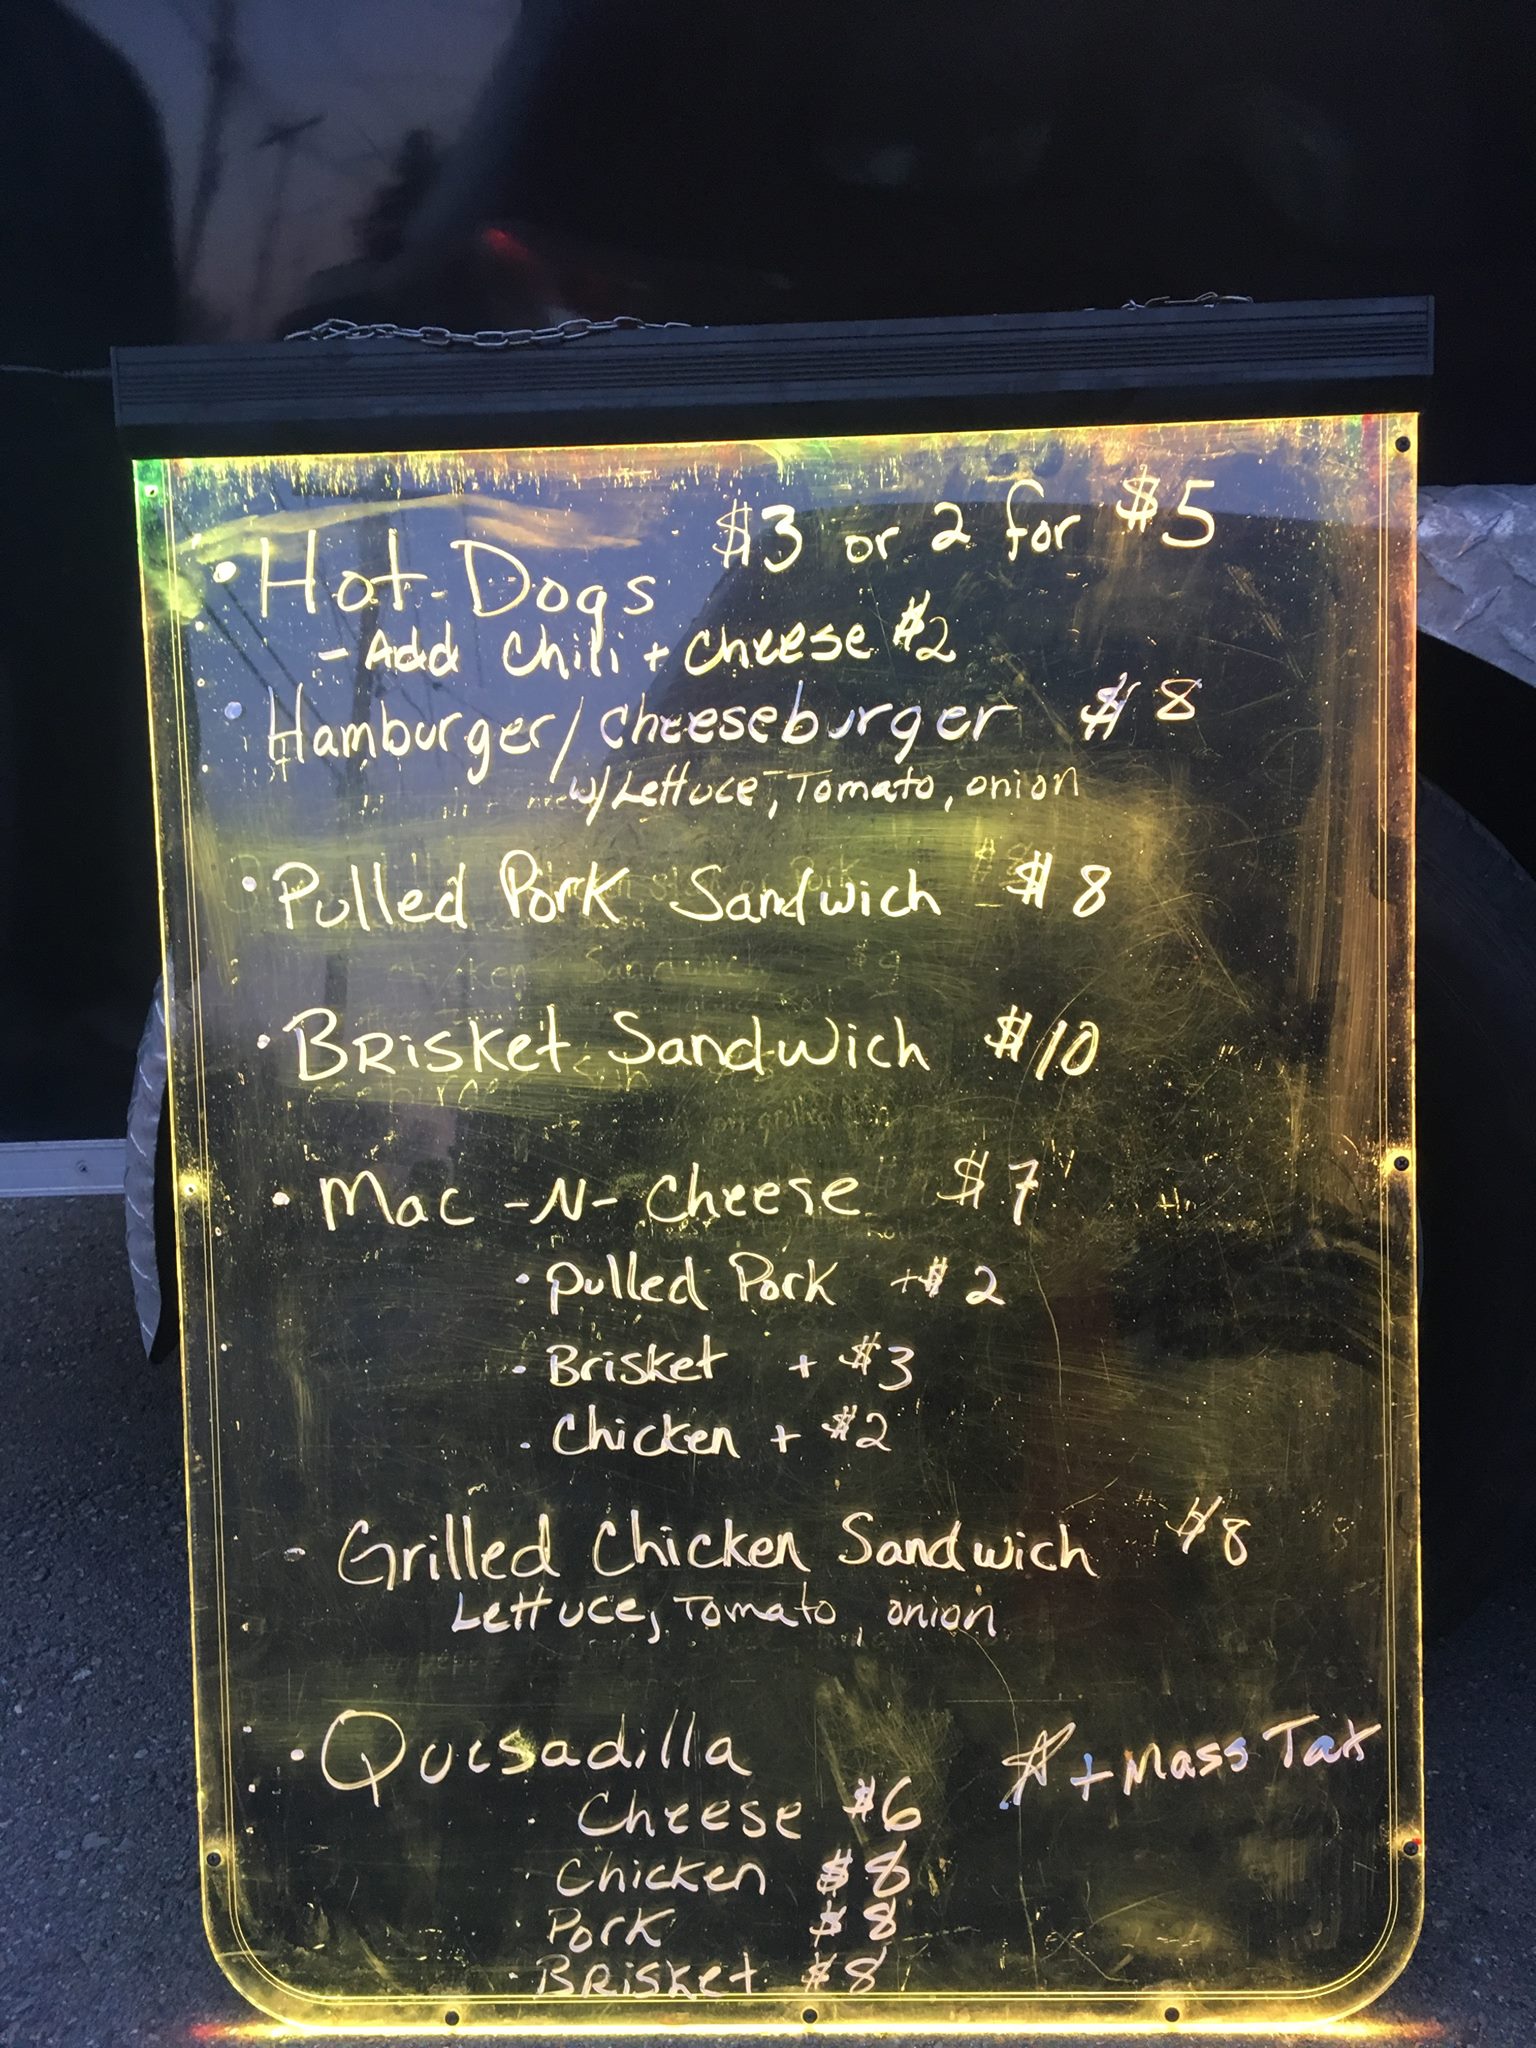 • Hot-Dogs $3 or 2 for $5
- Add Chili + Cheese $2
• Hamburger/Cheeseburger $8
w/Lettuce, Tomato, onion
• Pulled Pork Sandwich $8
• Brisket Sandwich $10
• Mac-N-Cheese $7
• Pulled Pork +$2
• Brisket + $3
• Chicken + $2
- Grilled Chicken Sandwich $8
Lettuce, Tomato, onion
• Quesadilla
$ + Mass Tax
• Cheese $6
• Chicken $8
Pork $8
• Brisket $8